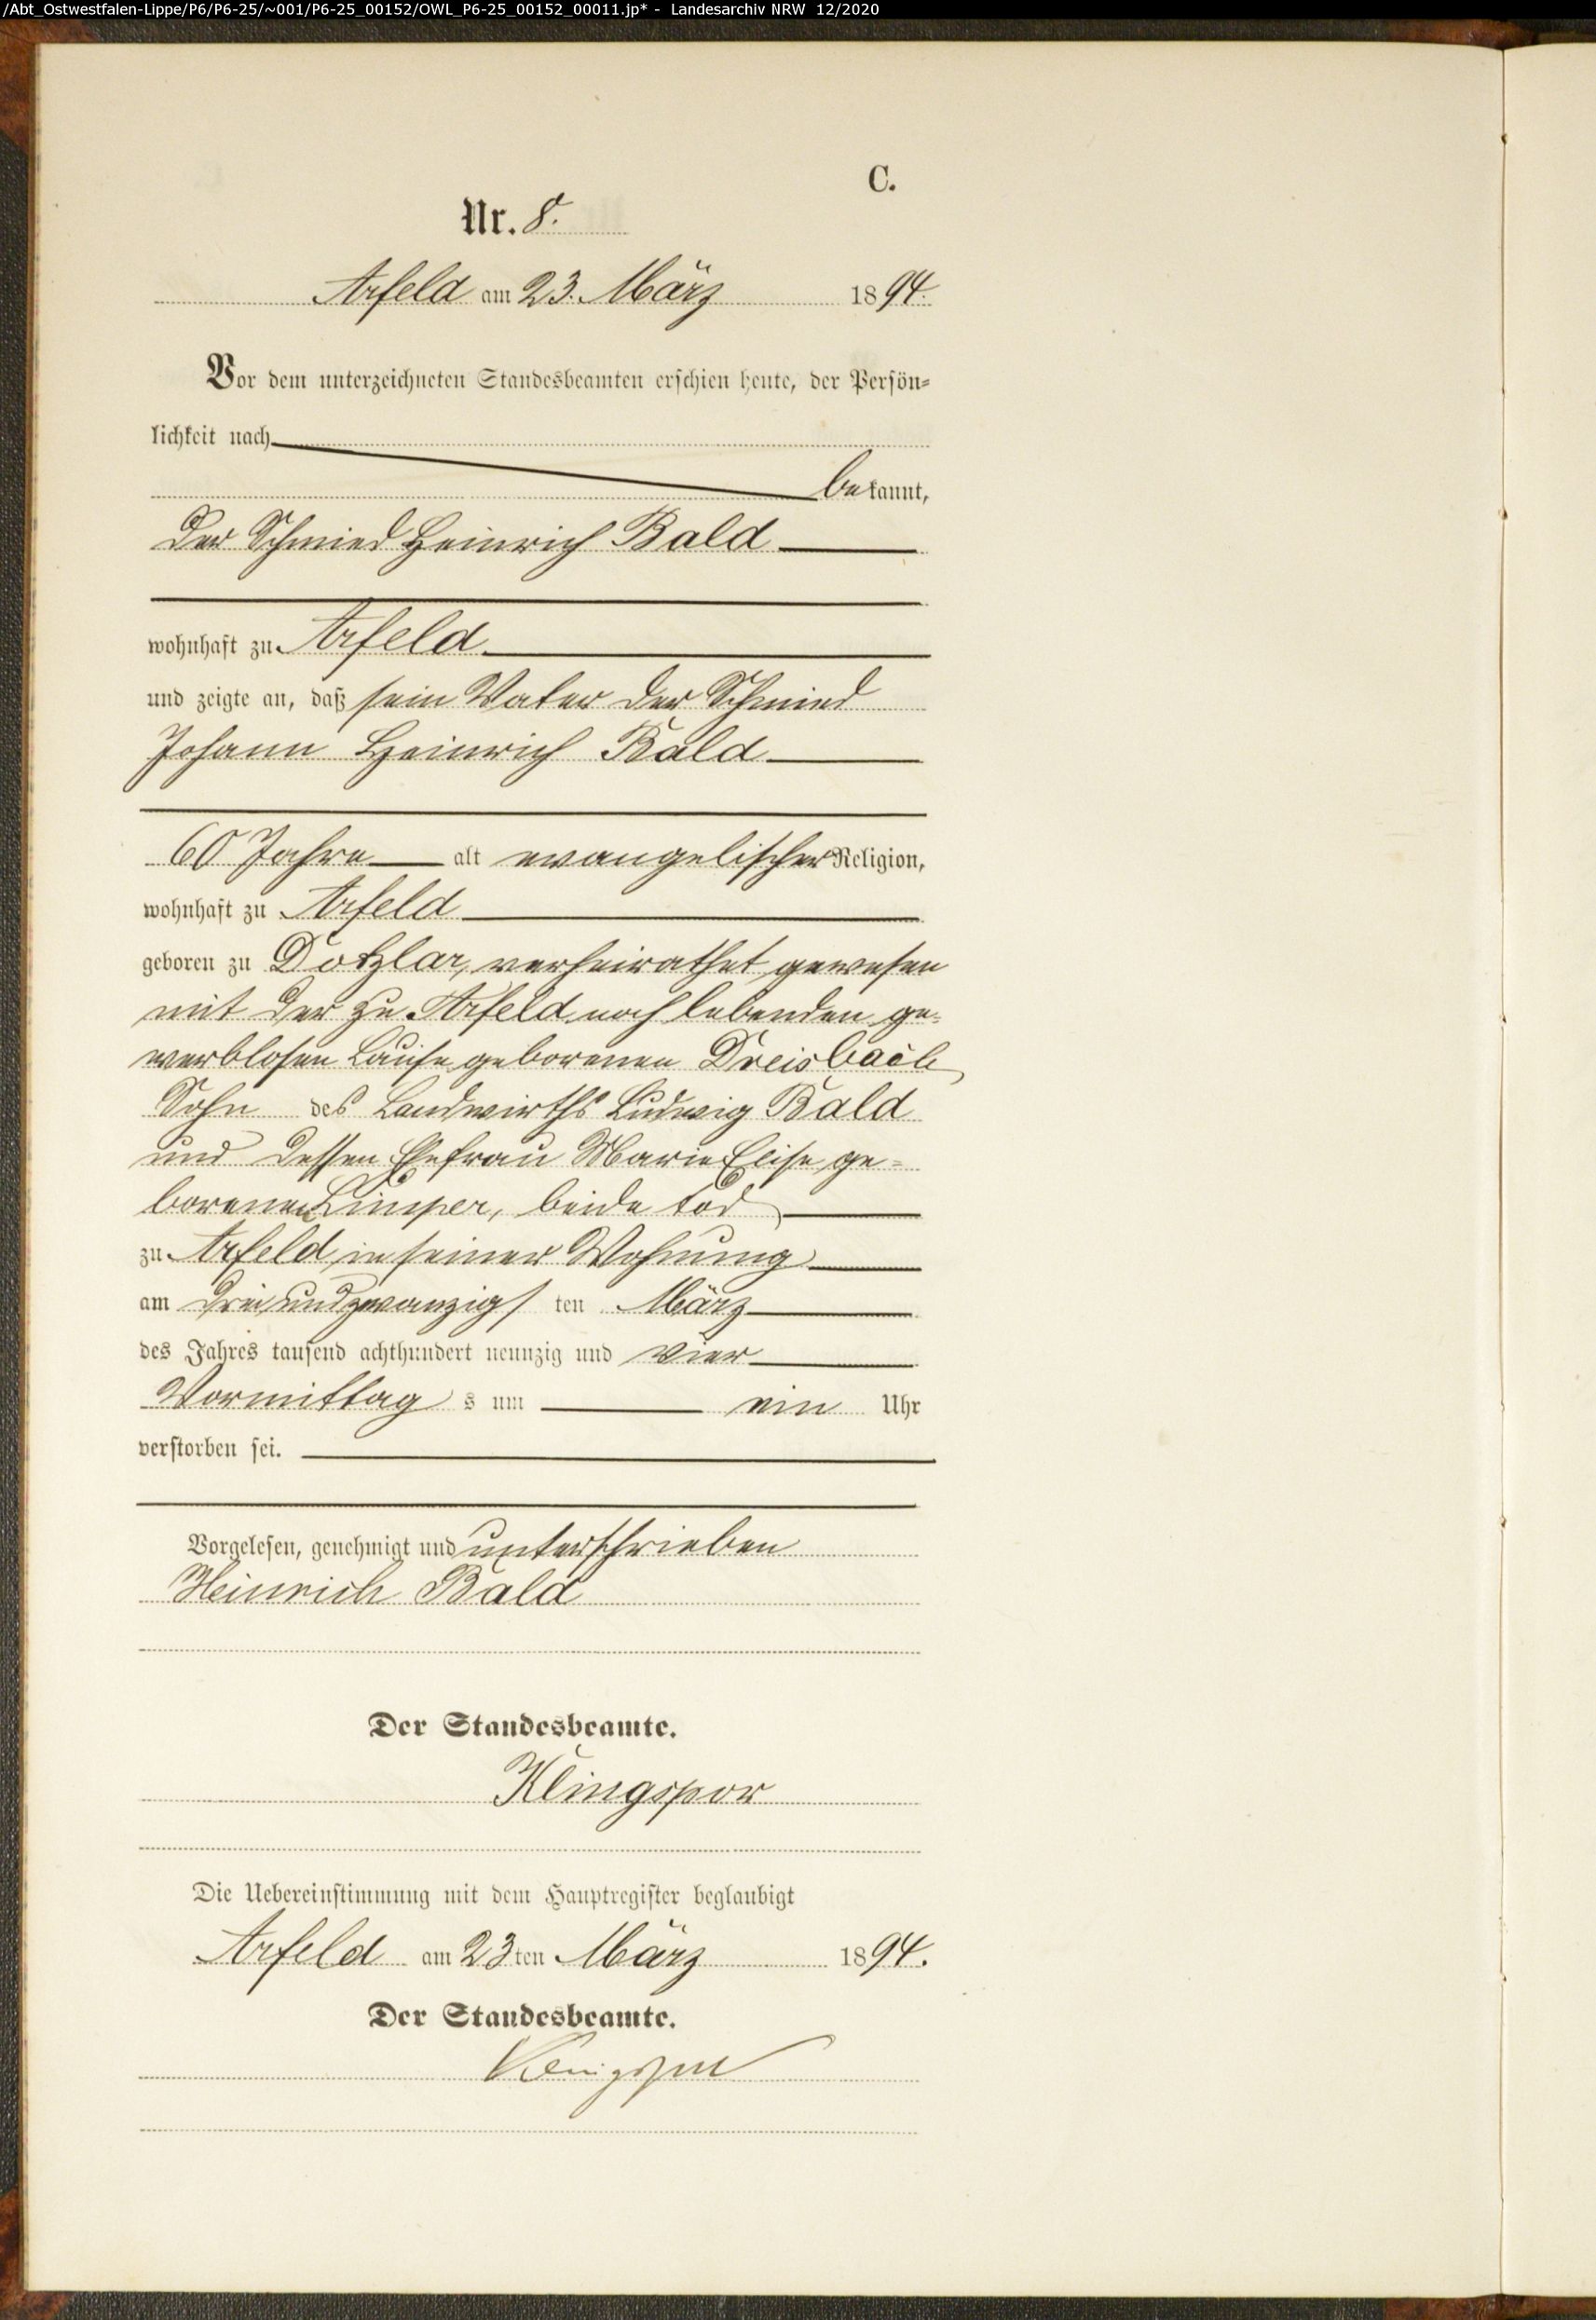 /Abt_Ostwestfalen-Lippe/P6/P6-25/~001/P6-25_00152/OWL_P6-25_00152_00011.jp* - Landesarchiv NRW 12/2020
C.
Nr. 8.
Arfeld am 23. März 1894.
Vor dem unterzeichneten Standesbeamten erschien heute, der Persön-
lichkeit nach
bekannt,
der Schmied Heinrich Bald
wohnhaft zu Arfeld
und zeigte an, daß sein Vater der Schmied
Johann Heinrich Bald
60 Jahre alt evangelischer Religion,
wohnhaft zu Arfeld
geboren zu Dotzlar, verheirathet gewesen
mit der zu Arfeld noch lebenden ge-
werblosen Lauise geborenen Dreisbach
Sohn des Landwirths Ludwig Bald
und dessen Ehefrau Marie Elise ge-
borenen Limper, beide tod
zu Arfeld in seiner Wohnung
am dreiundzwanzigsten März
des Jahres tausend achthundert neunzig und vier
Vormittags um ein Uhr
verstorben sei.
Vorgelesen, genehmigt und unterschrieben
Heinrich Bald
Der Standesbeamte.
Klingspor
Die Uebereinstimmung mit dem Hauptregister beglaubigt
Arfeld am 23ten März 1894.
Der Standesbeamte.
Klingspor